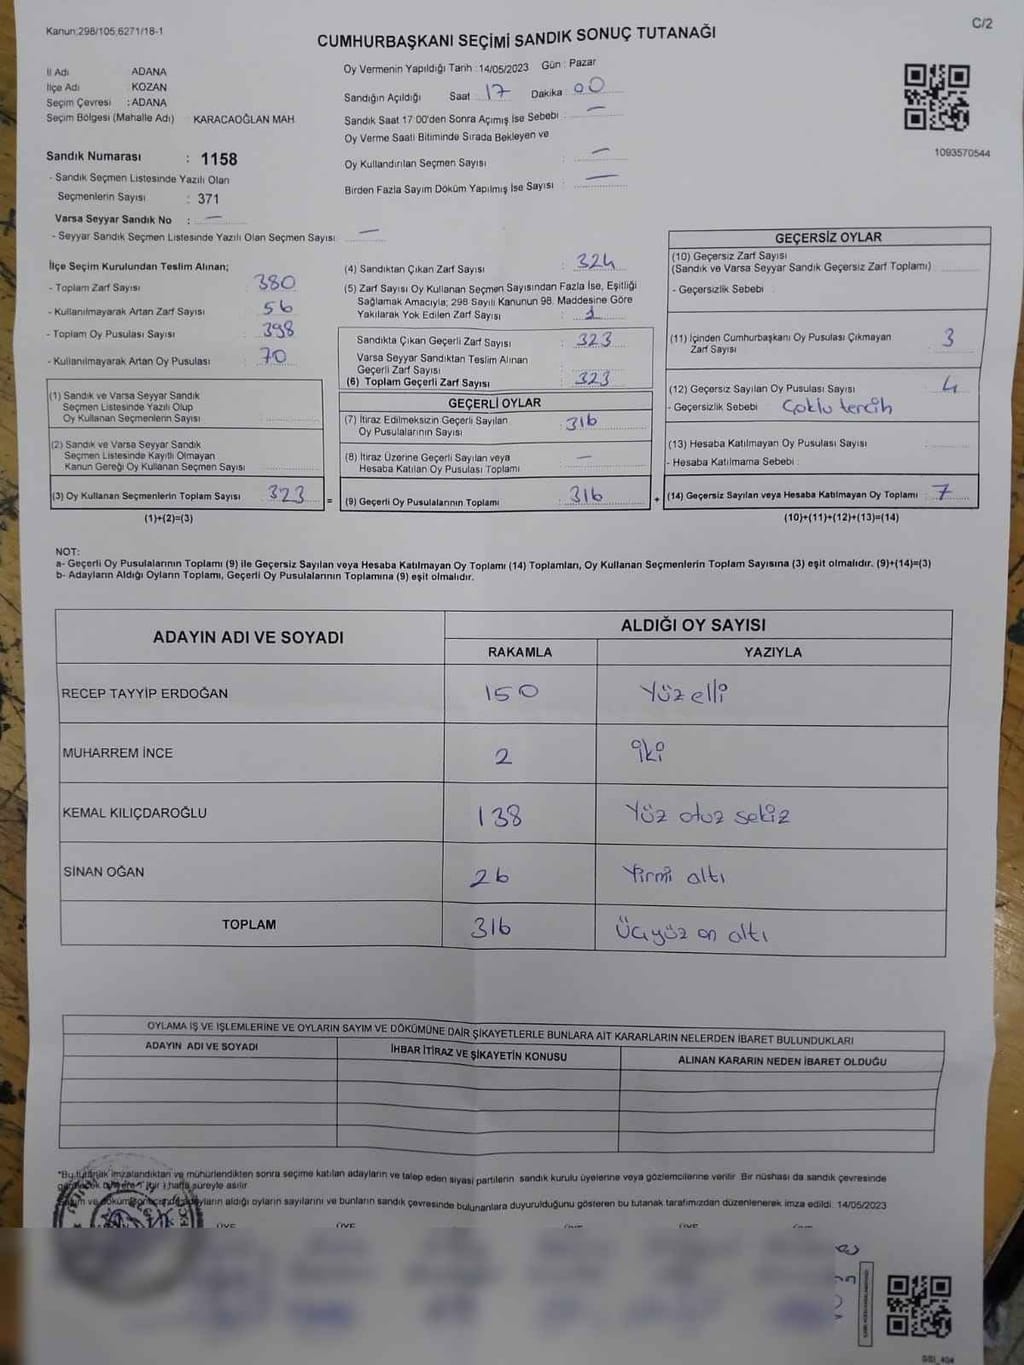 Kanun:298/105,6271/18-1
C/2
CUMHURBAŞKANI SEÇİMİ SANDIK SONUÇ TUTANAĞI
İl Adı ADANA
İlçe Adı KOZAN
Seçim Çevresi : ADANA
Seçim Bölgesi (Mahalle Adı) KARACAOĞLAN MAH.
Oy Vermenin Yapıldığı Tarih : 14/05/2023 Gün : Pazar
Sandığın Açıldığı Saat 17 Dakika 00
Sandık Saat 17 00'den Sonra Açımış İse Sebebi : —
Oy Verme Saati Bitiminde Sırada Bekleyen ve
Oy Kullandırılan Seçmen Sayısı : —
Birden Fazla Sayım Döküm Yapılmış İse Sayısı : —
1093570544
Sandık Numarası : 1158
- Sandık Seçmen Listesinde Yazılı Olan
Seçmenlerin Sayısı : 371
Varsa Seyyar Sandık No : —
- Seyyar Sandık Seçmen Listesinde Yazılı Olan Seçmen Sayısı : —
İlçe Seçim Kurulundan Teslim Alınan;
- Toplam Zarf Sayısı : 380
- Kullanılmayarak Artan Zarf Sayısı : 56
- Toplam Oy Pusulası Sayısı : 398
- Kullanılmayarak Artan Oy Pusulası : 70
(1) Sandık ve Varsa Seyyar Sandık
Seçmen Listesinde Yazılı Olup
Oy Kullanan Seçmenlerin Sayısı
(2) Sandık ve Varsa Seyyar Sandık
Seçmen Listesinde Kayıtlı Olmayan
Kanun Gereği Oy Kullanan Seçmen Sayısı
(3) Oy Kullanan Seçmenlerin Toplam Sayısı 323 =
(1)+(2)=(3)
(4) Sandıktan Çıkan Zarf Sayısı : 324
(5) Zarf Sayısı Oy Kullanan Seçmen Sayısından Fazla İse, Eşitliği
Sağlamak Amacıyla; 298 Sayılı Kanunun 98. Maddesine Göre
Yakılarak Yok Edilen Zarf Sayısı : 1
Sandıkta Çıkan Geçerli Zarf Sayısı : 323
Varsa Seyyar Sandıktan Teslim Alınan
Geçerli Zarf Sayısı
(6) Toplam Geçerli Zarf Sayısı : 323
GEÇERLİ OYLAR
(7) İtiraz Edilmeksizin Geçerli Sayılan
Oy Pusulalarının Sayısı : 316
(8) İtiraz Üzerine Geçerli Sayılan veya
Hesaba Katılan Oy Pusulası Toplamı : —
(9) Geçerli Oy Pusulalarının Toplamı : 316 +
GEÇERSİZ OYLAR
(10) Geçersiz Zarf Sayısı
(Sandık ve Varsa Seyyar Sandık Geçersiz Zarf Toplamı)
- Geçersizlik Sebebi :
(11) İçinden Cumhurbaşkanı Oy Pusulası Çıkmayan
Zarf Sayısı 3
(12) Geçersiz Sayılan Oy Pusulası Sayısı : 4
- Geçersizlik Sebebi : Çoklu tercih
(13) Hesaba Katılmayan Oy Pusulası Sayısı :
- Hesaba Katılmama Sebebi :
(14) Geçersiz Sayılan veya Hesaba Katılmayan Oy Toplamı : 7
(10)+(11)+(12)+(13)=(14)
NOT:
a- Geçerli Oy Pusulalarının Toplamı (9) ile Geçersiz Sayılan veya Hesaba Katılmayan Oy Toplamı (14) Toplamları, Oy Kullanan Seçmenlerin Toplam Sayısına (3) eşit olmalıdır. (9)+(14)=(3)
b- Adayların Aldığı Oyların Toplamı, Geçerli Oy Pusulalarının Toplamına (9) eşit olmalıdır.
ADAYIN ADI VE SOYADI ALDIĞI OY SAYISI
RAKAMLA YAZIYLA
RECEP TAYYİP ERDOĞAN 150 Yüz elli
MUHARREM İNCE 2 iki
KEMAL KILIÇDAROĞLU 138 Yüz otuz sekiz
SİNAN OĞAN 26 Yirmi altı
TOPLAM 316 Üçyüz on altı
OYLAMA İŞ VE İŞLEMLERİNE VE OYLARIN SAYIM VE DÖKÜMÜNE DAİR ŞİKAYETLERLE BUNLARA AİT KARARLARIN NELERDEN İBARET BULUNDUKLARI
ADAYIN ADI VE SOYADI İHBAR İTİRAZ VE ŞİKAYETİN KONUSU ALINAN KARARIN NEDEN İBARET OLDUĞU
*Bu tutanak imzalandıktan ve mühürlendikten sonra seçime katılan adayların ve talep eden siyasi partilerin sandık kurulu üyelerine veya gözlemcilerine verilir. Bir nüshası da sandık çevresinde
hafta süreyle asılır.
adayların aldığı oyların sayılarını ve bunların sandık çevresinde bulunanlara duyurulduğunu gösteren bu tutanak tarafımızdan düzenlenerek imza edildi. 14/05/2023